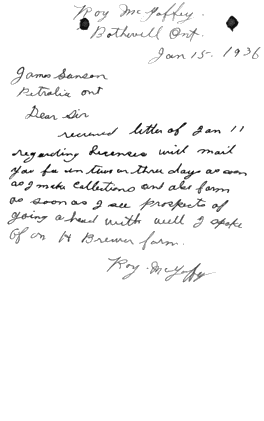 Roy McGaffey.
Bothwell Ont.
Jan 15. 1936
James Sanson
Petrolia ont
Dear Sir
received letter of Jan 11
regarding licenses will mail
you fee in two or three days as soon
as I make collections and also farm
as soon as I see prospects of
going ahead with well I spoke
of on H Brewer farm.
Roy. McGaffey